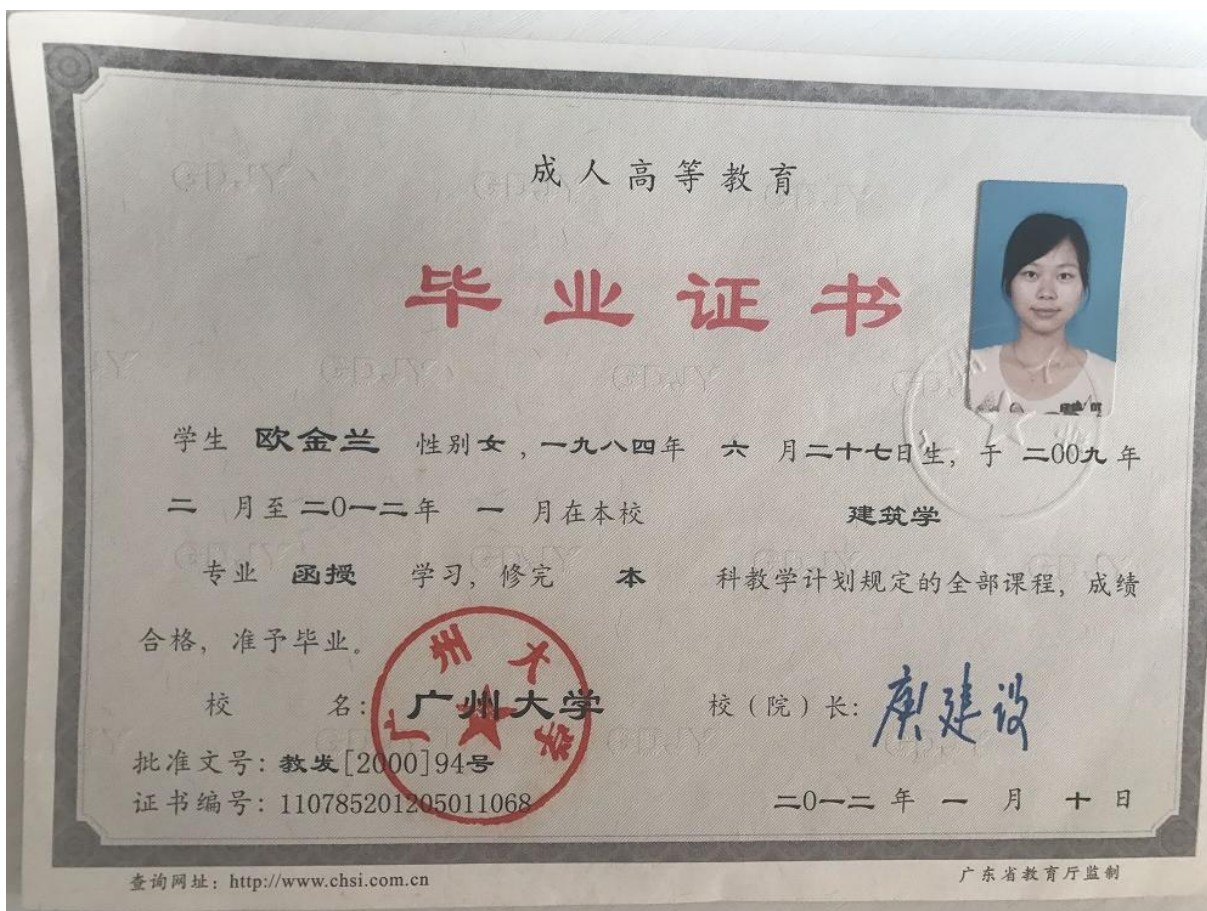 成人高等教育
毕业证书
学生 欧金兰 性别女,一九八四年 六 月二十七日生,于 二00九年
二 月至二0一二年 一 月在本校 建筑学
专业 函授 学习,修完 本 科教学计划规定的全部课程,成绩
合格,准予毕业。
广州大学
校 名: 广州大学 校(院)长: 庾建设
批准文号: 教发[2000]94号
证书编号: 110785201205011068 二0一二 年 一 月 十 日
查询网址: http://www.chsi.com.cn 广东省教育厅监制